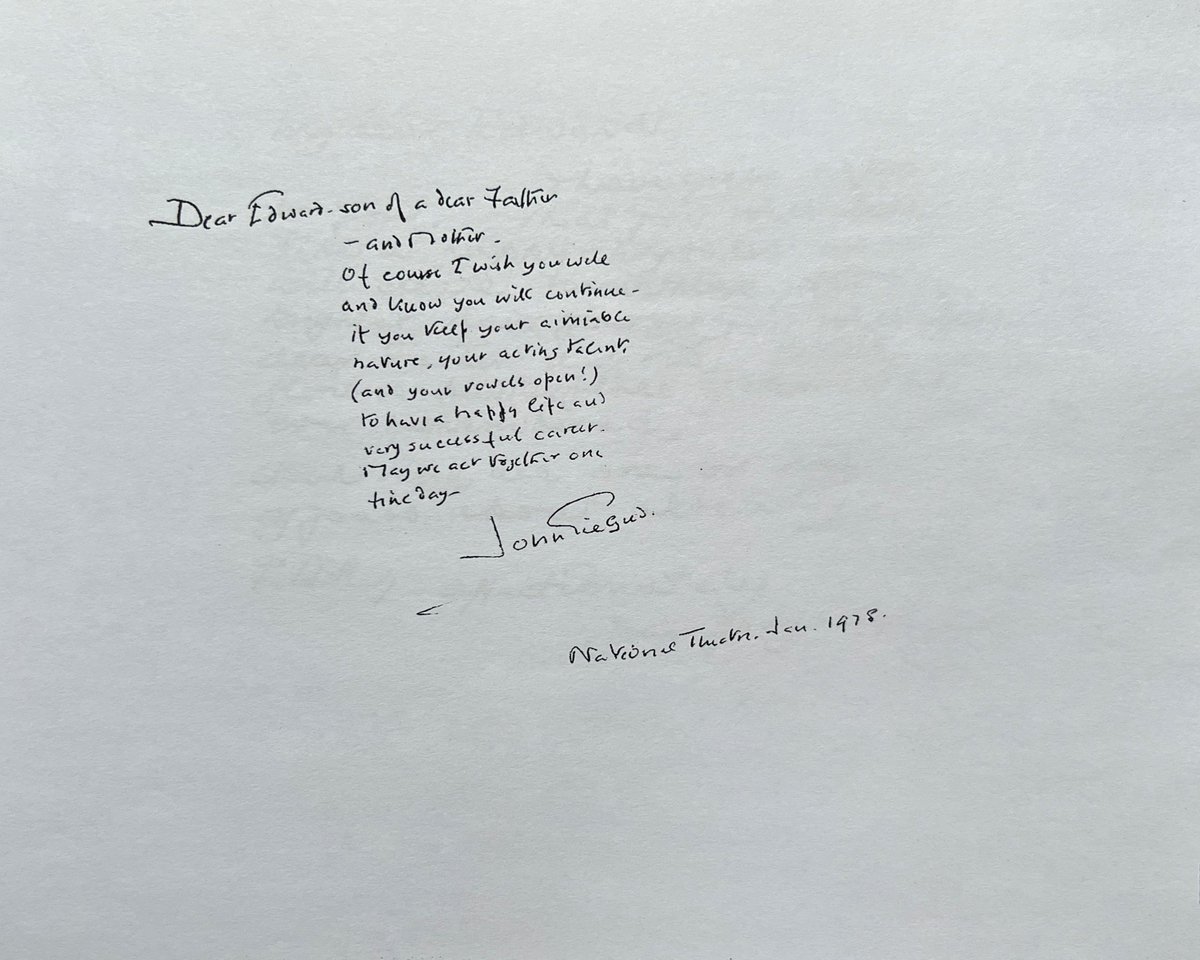 Dear Edward - son of a dear Father
- and Mother.
Of course I wish you well
and know you will continue -
if you keep your aimiable
nature, your acting talent,
(and your vowels open!)
to have a happy life and
very successful career.
May we act together one
fine day -
John Gielgud.
National Theatre. Jan. 1978.